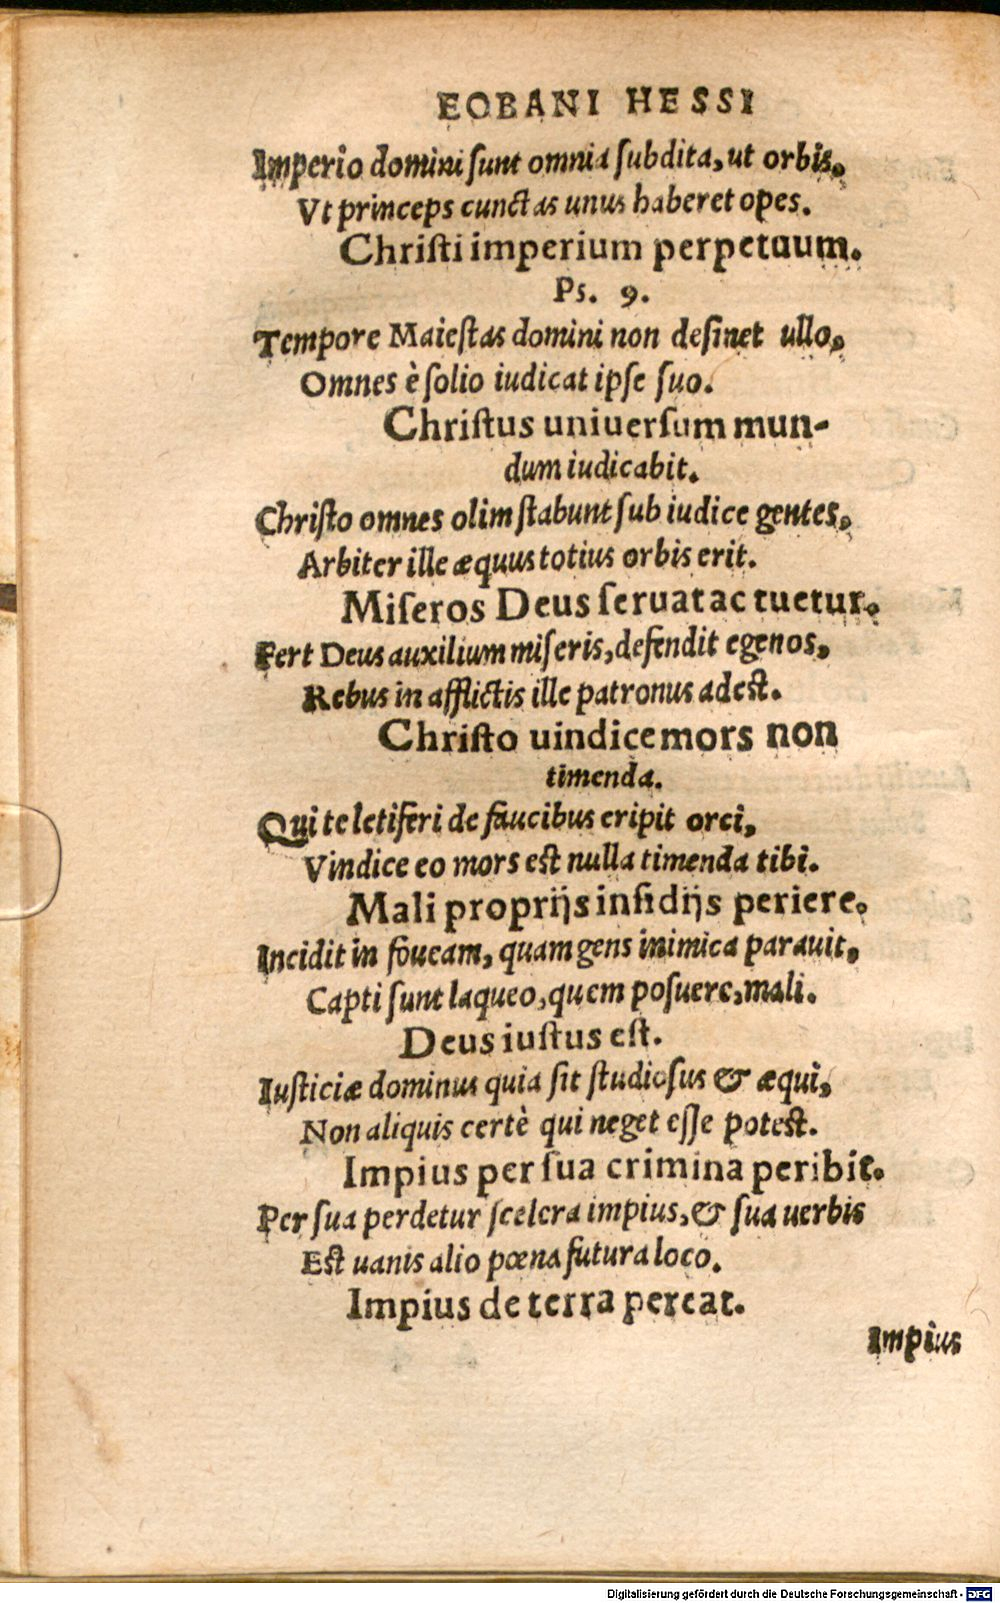 EOBANI HESSI
Imperio domini sunt omnia subdita, ut orbis,
Vt princeps cunctas unus haberet opes.
Christi imperium perpetuum.
Ps. 9.
Tempore Maiestas domini non desinet ullo,
Omnes è solio iudicat ipse suo.
Christus uniuersum mun-
dum iudicabit.
Christo omnes olim stabunt sub iudice gentes,
Arbiter ille æquus totius orbis erit.
Miseros Deus seruat ac tuetur.
Fert Deus auxilium miseris, defendit egenos,
Rebus in afflictis ille patronus adest.
Christo uindice mors non
timenda.
Qui te letiferi de faucibus eripit orci,
Vindice eo mors est nulla timenda tibi.
Mali proprijs insidijs periere.
Incidit in foueam, quam gens inimica parauit,
Capti sunt laqueo, quem posuere, mali.
Deus iustus est.
Iusticiæ dominus quia sit studiosus & æqui,
Non aliquis certè qui neget esse potest.
Impius per sua crimina peribit.
Per sua perdetur scelera impius, & sua uerbis
Est uanis alio pœna futura loco.
Impius de terra pereat.
Impius
Digitalisierung gefördert durch die Deutsche Forschungsgemeinschaft - DFG